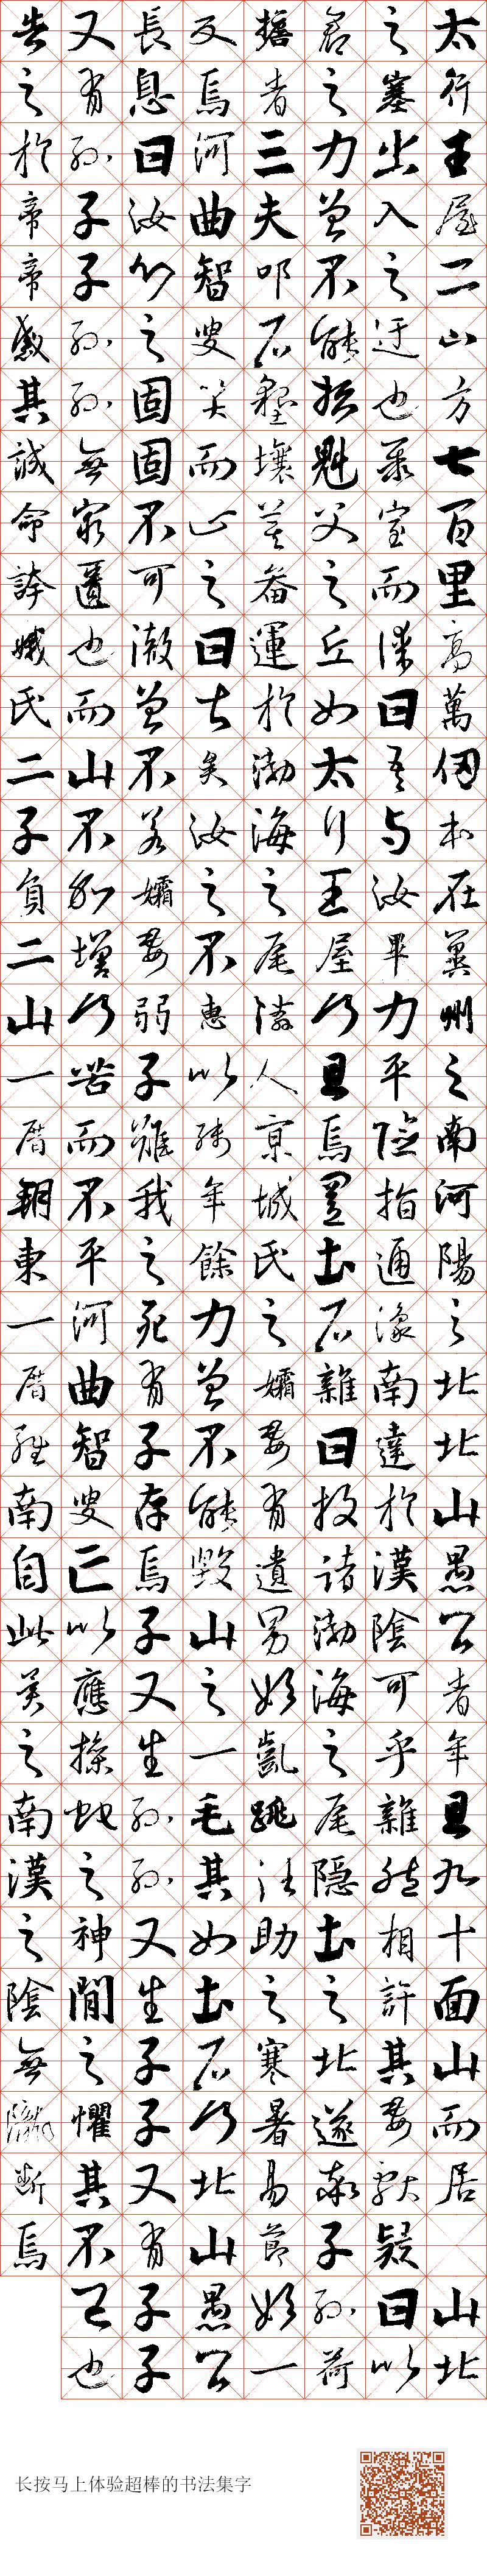 太行王屋二山方七百里高萬仞本在冀州之南河陽之北北山愚公者年且九十面山而居山北
之塞出入之迂也聚室而謀曰吾与汝畢力平險指通豫南達於漢陰可乎雜然相許其妻獻疑曰以
君之力曾不能損魁父之丘如太行王屋何且焉置土石雜曰投諸渤海之尾隱土之北遂率子孫荷
擔者三夫叩石墾壤箕畚運於渤海之尾鄰人京城氏之孀妻有遺男始齔跳往助之寒暑易節始一
反焉河曲智叟笑而止之曰甚矣汝之不惠以殘年餘力曾不能毀山之一毛其如土石何北山愚公
長息曰汝心之固固不可徹曾不若孀妻弱子雖我之死有子存焉子又生孫孫又生子子又有子子
又有孫子子孫孫無窮匱也而山不加增何苦而不平河曲智叟亡以應操蛇之神聞之懼其不已也
告之於帝帝感其誠命誇娥氏二子負二山一厝朔東一厝雍南自此冀之南漢之陰無隴斷焉
长按马上体验超棒的书法集字